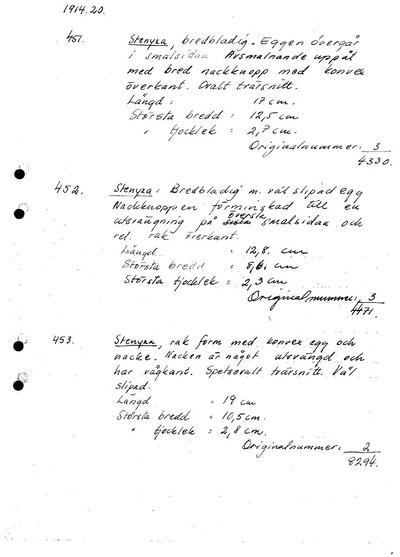 1914.20.
451. Stenyxa, bredbladig. Eggen övergår
i smalsidan. Avsmalnande uppåt
med bred nackknopp med konvex
överkant. Ovalt tvärsnitt.
Längd : 17 cm.
Största bredd = 12,5 cm
" tjocklek = 2,7 cm.
Originalnummer: 3
4330.
452. Stenyxa: Bredbladig m. väl slipad egg
Nackknoppen förminskad till en
utsvängning på översta smalsidan och
rel. rak överkant.
Längd = 12,8. cm
Största bredd = 8,6. cm
Största tjocklek = 2,3 cm
Originalnummer: 3
4471.
453. Stenyxa, rak form med konvex egg och
nacke. Nacken är något utsvängd och
har vågkant. Spetsovalt tvärsnitt. Väl
slipad.
Längd = 19 cm
Största bredd = 10,5 cm.
" tjocklek = 2,8 cm.
Originalnummer: 2
8294.